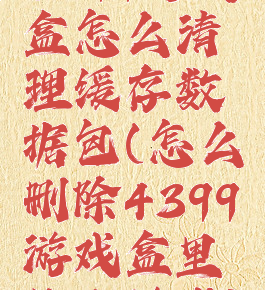 盒怎么清
理缓存数
据包(怎么
删除4399
游戏盒里